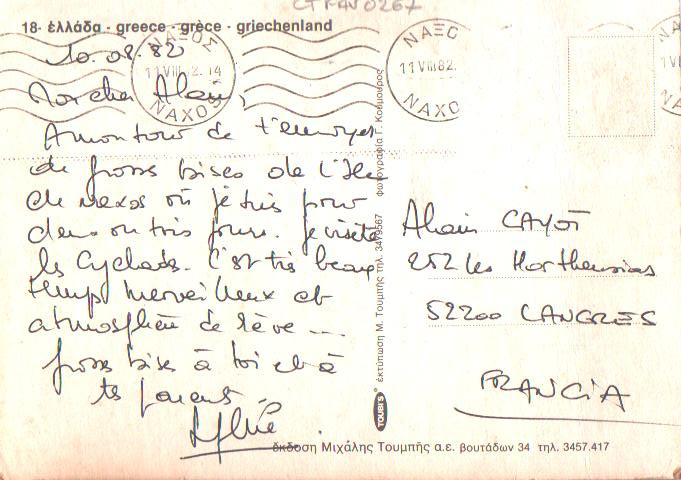 CTRAV0267
18- ελλάδα - greece - grèce - griechenland
10.08.82
ΝΑΞΟΣ
11 VIII 2.14
ΝΑΧΟS
ΝΑΞΟ
11 VIII 82.
NAXO
Mon cher Alain,
A mon tour de t'envoyer
de gross bises de l'Ile
de Naxos où je suis pour
deux ou trois jours. Je visite
les Cyclades. C'est très beau
temps merveilleux et
atmosphère de rêve ...
gross bises à toi et à
tes parents
Alain CAYOT
252 les Hortensias
52200 LANGRES
FRANCIA
εκτύπωση Μ. Τουμπής τηλ. 3409567 φωτογραφία Γ. Κουμούρος
TOUBI'S
έκδοση Μιχάλης Τουμπής α.ε. βουτάδων 34 τηλ. 3457.417